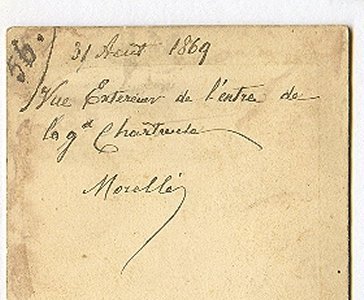 56.
31 Aout 1869
Vue Exterieur de l'entre de
la gde Chartreuse
Morellé